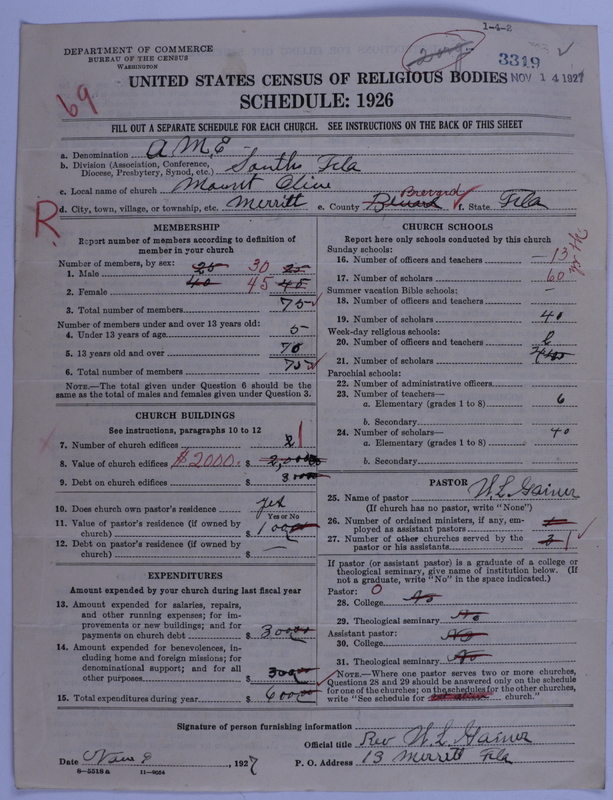 1-4-2
DEPARTMENT OF COMMERCE
BUREAU OF THE CENSUS
WASHINGTON
3319
NOV 14 1927
69
UNITED STATES CENSUS OF RELIGIOUS BODIES
SCHEDULE: 1926
FILL OUT A SEPARATE SCHEDULE FOR EACH CHURCH. SEE INSTRUCTIONS ON THE BACK OF THIS SHEET
a. Denomination A M E
b. Division (Association, Conference, Diocese, Presbytery, Synod, etc.) South Fla
c. Local name of church Mount Olive
R
d. City, town, village, or township, etc. Merritt e. County Brevard f. State Fla
MEMBERSHIP
Report number of members according to definition of member in your church
Number of members, by sex:
1. Male 25 30 25
2. Female 40 45 45
3. Total number of members 75
Number of members under and over 13 years old:
4. Under 13 years of age 5
5. 13 years old and over 70
6. Total number of members 75
NOTE.—The total given under Question 6 should be the same as the total of males and females given under Question 3.
CHURCH BUILDINGS
See instructions, paragraphs 10 to 12
7. Number of church edifices 1
8. Value of church edifices $2000.
9. Debt on church edifices
10. Does church own pastor's residence? yes
Yes or No
11. Value of pastor's residence (if owned by church) $
12. Debt on pastor's residence (if owned by church) $ —
EXPENDITURES
Amount expended by your church during last fiscal year
13. Amount expended for salaries, repairs, and other running expenses; for improvements or new buildings; and for payments on church debt $ 300
14. Amount expended for benevolences, including home and foreign missions; for denominational support; and for all other purposes $ 300
15. Total expenditures during year $ 600
CHURCH SCHOOLS
Report here only schools conducted by this church
Sunday schools:
16. Number of officers and teachers 13
17. Number of scholars 60
Summer vacation Bible schools:
18. Number of officers and teachers —
19. Number of scholars 40
Week-day religious schools:
20. Number of officers and teachers
21. Number of scholars
Parochial schools:
22. Number of administrative officers
23. Number of teachers—
a. Elementary (grades 1 to 8) 6
b. Secondary
24. Number of scholars—
a. Elementary (grades 1 to 8) 40
b. Secondary
PASTOR
25. Name of pastor W. L. Gainer
(If church has no pastor, write "None")
26. Number of ordained ministers, if any, employed as assistant pastors
27. Number of other churches served by the pastor or his assistants 3 1
If pastor (or assistant pastor) is a graduate of a college or theological seminary, give name of institution below. (If not a graduate, write "No" in the space indicated.)
Pastor: O
28. College No
29. Theological seminary No
Assistant pastor:
30. College No
31. Theological seminary No
NOTE.—Where one pastor serves two or more churches, Questions 28 and 29 should be answered only on the schedule for one of the churches; on the schedules for the other churches, write "See schedule for church."
Signature of person furnishing information
Official title Rev W. L. Gainer
Date , 1927 P. O. Address 13 Merritt Fla
8—5518a 11—9054